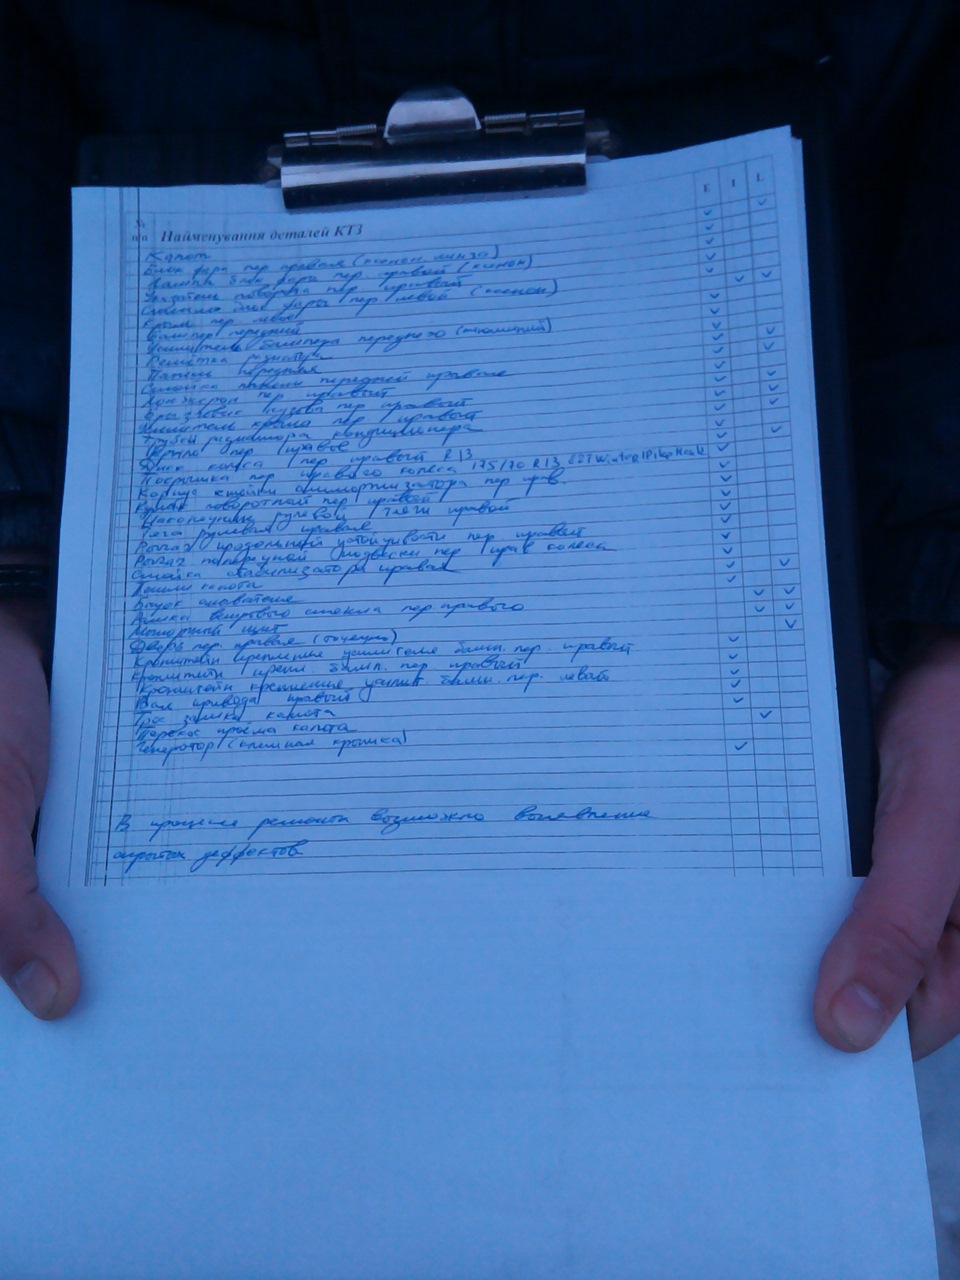 № п/п Найменування деталей КТЗ E I L
Капот
Блок фара пер правая (ксенон. линза)
блок фары пер. правой (ксенон)
Указатель поворота пер правый
блок фары пер левой (ксенон)
Крыло пер левое
Бампер передний
Усилитель бампера переднего
Решетка радиатора
Панель передняя
панели передней правая
Лонжерон пер правый
Брызговик кузова пер правый
Усилитель крыла пер правый
Трубки радиатора кондиционера
Крыло пер правое
Диск колеса пер правый R13
Покрышка пер правого колеса 175/70 R13
амортизатора пер прав.
Кулак поворотный пер правый
Наконечник рулевой тяги правой
Тяга рулевая правая
Рычаг продольный устойчивости пер правый
Рычаг поперечной подвески пер прав колеса
Стойка стабилизатора правая
Петли капота
Бачок омывателя
Рамка ветрового стекла пер правого
Моторный щит
Дверь пер. правая
Кронштейн крепления усилителя бамп. пер. правый
Кронштейн крепл бамп. пер. правый
Кронштейн крепления усилит. бамп. пер. левый
Вал привода правый
Трос замка капота
Перекос проема капота
Генератор
В процессе ремонта возможно выявление
скрытых деффектов